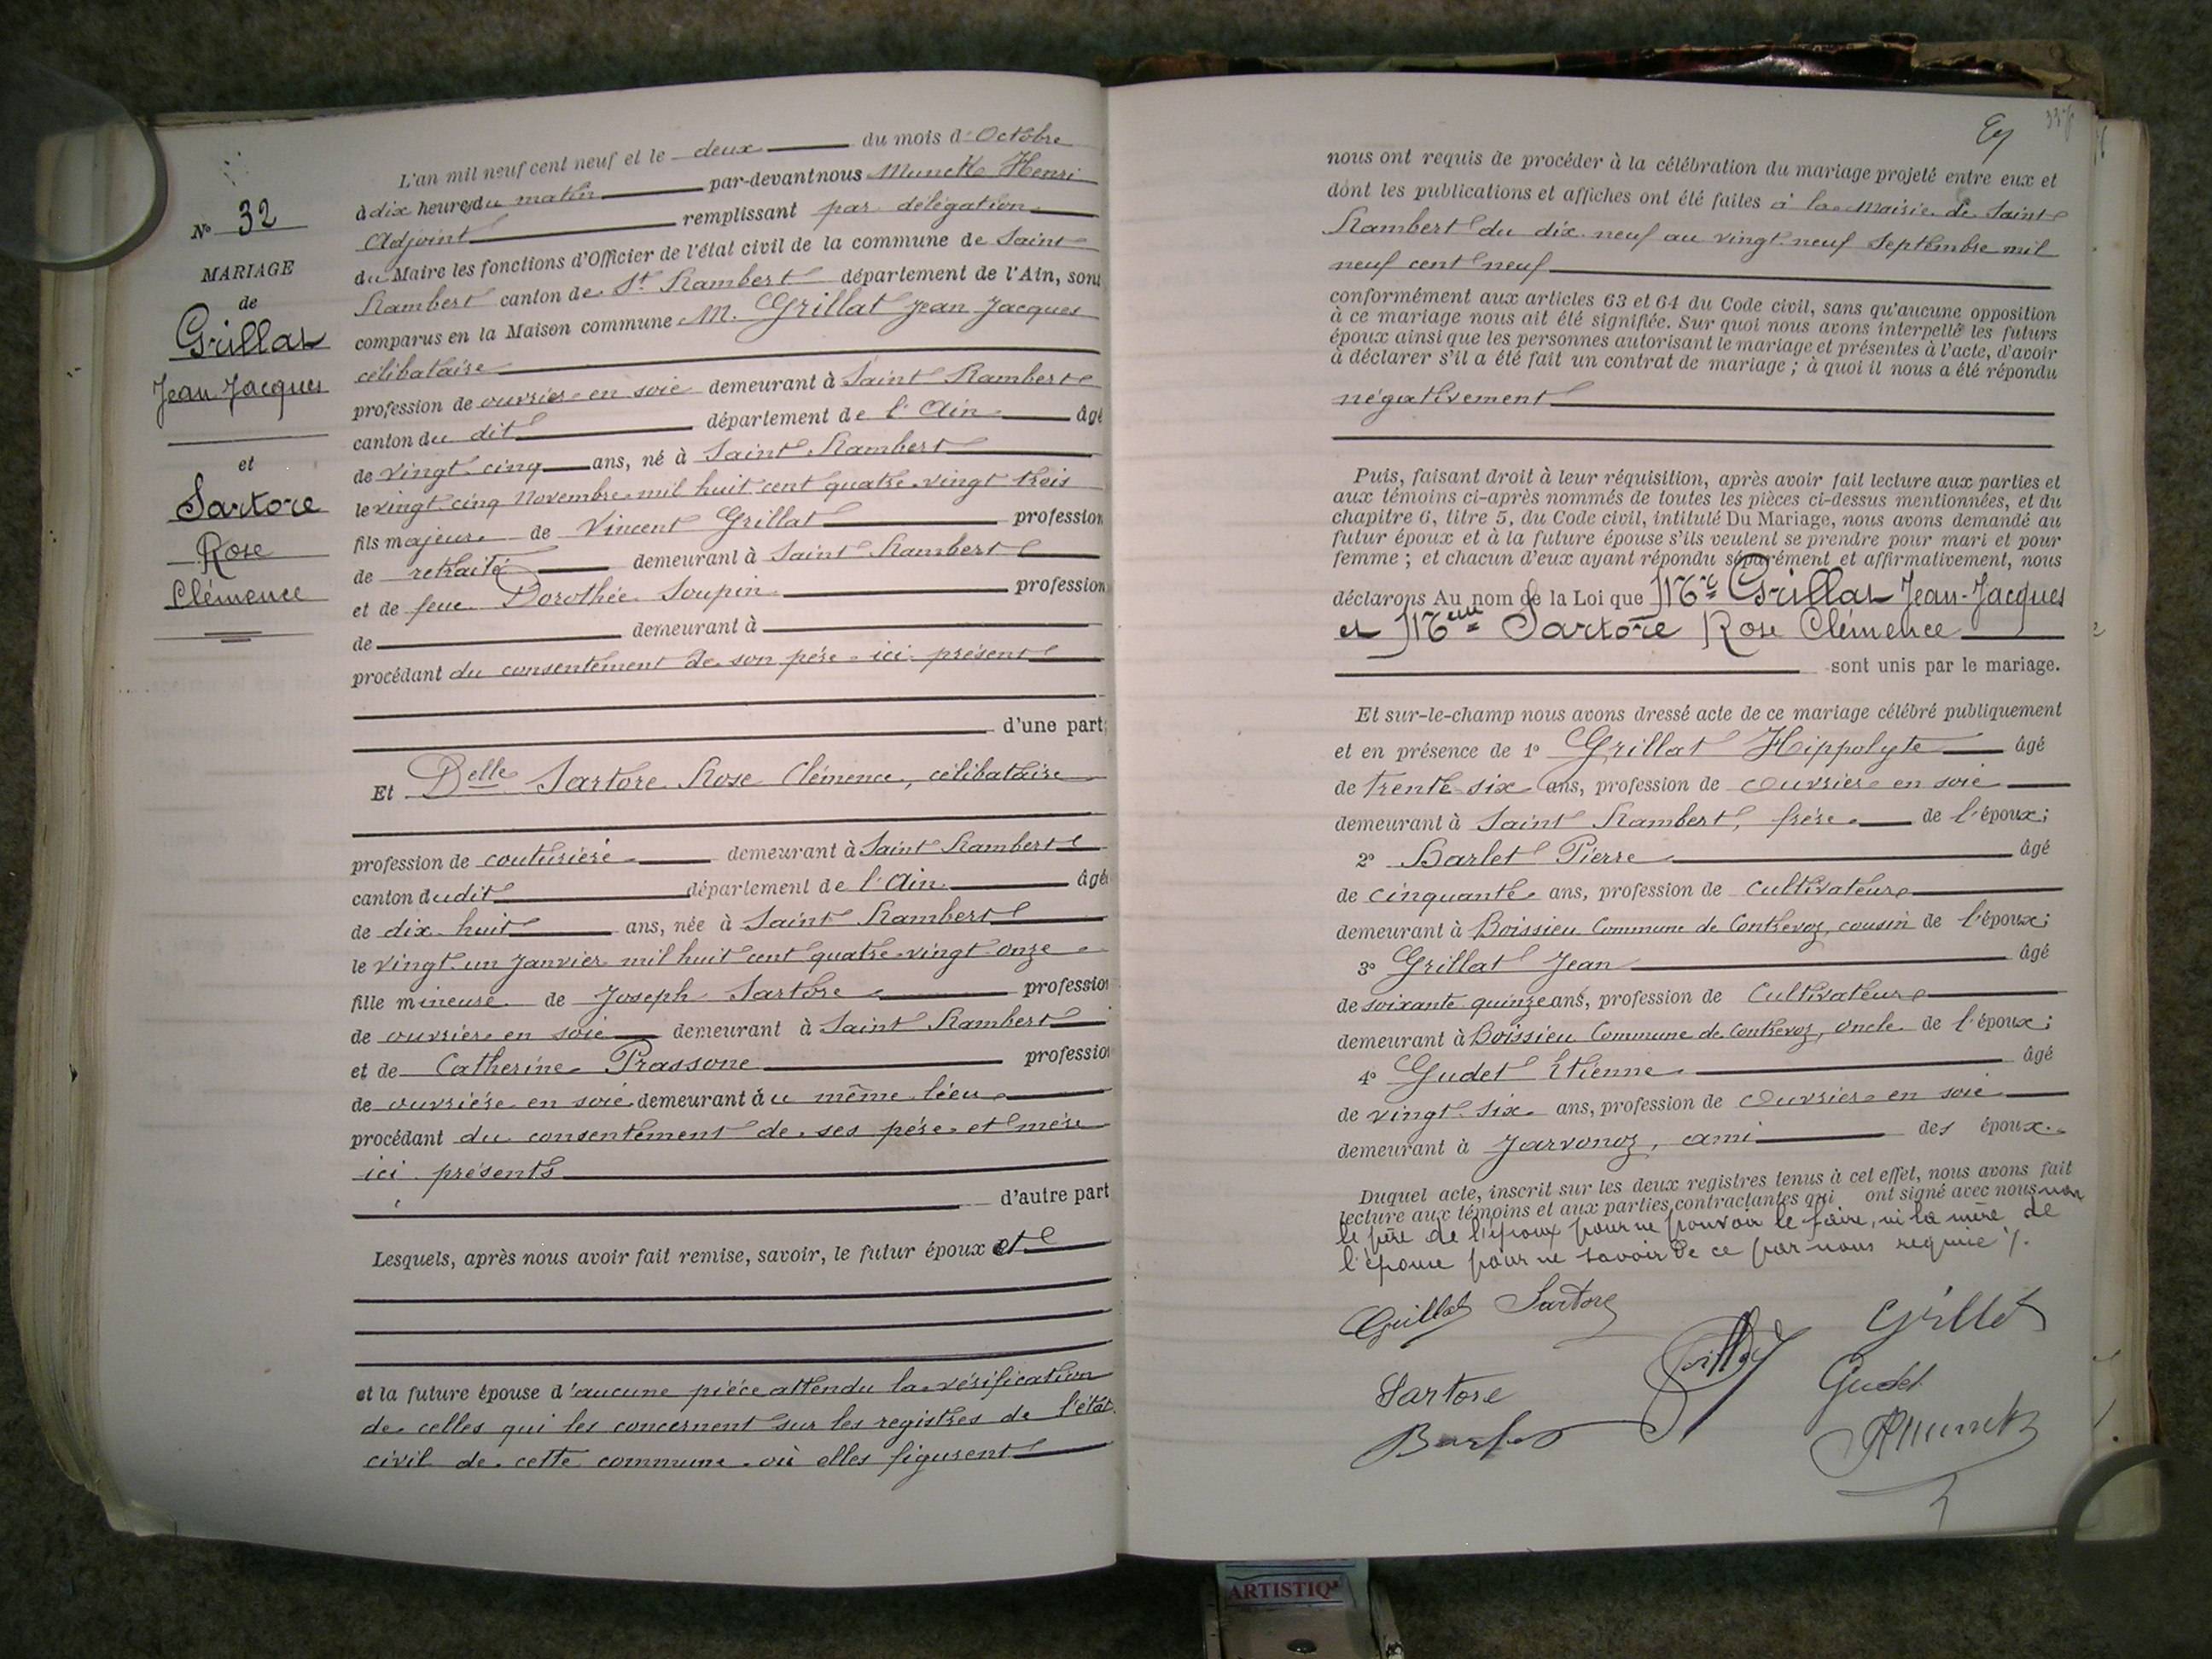 N° 32
MARIAGE
de
Grillat
Jean Jacques
et
Sartore
Rose
Clémence
L'an mil neuf cent neuf et le deux du mois d'Octobre
à dix heures du matin par-devant nous Munck Henri
Adjoint remplissant par délégation
du Maire les fonctions d'Officier de l'état civil de la commune de Saint
Rambert canton de St Rambert département de l'Ain, sont
comparus en la Maison commune M. Grillat Jean Jacques
célibataire
profession de ouvrier en soie demeurant à Saint Rambert
canton du dit département de l'Ain âgé
de vingt cinq ans, né à Saint Rambert
le vingt cinq Novembre mil huit cent quatre vingt trois
fils majeur de Vincent Grillat profession
de retraité demeurant à Saint Rambert
et de feue Dorothée Soupin profession
de demeurant à
procédant du consentement de son père ici présent
d'une part;
Et Delle Sartore Rose Clémence, célibataire
profession de couturière demeurant à Saint Rambert
canton dudit département de l'Ain âgée
de dix huit ans, née à Saint Rambert
le vingt un Janvier mil huit cent quatre vingt onze
fille mineure de Joseph Sartore profession
de ouvrier en soie demeurant à Saint Rambert
et de Catherine Prassone profession
de ouvrière en soie demeurant au même lieu
procédant du consentement de ses père et mère
ici présents
d'autre part
Lesquels, après nous avoir fait remise, savoir, le futur époux et
et la future épouse d'aucune pièce attendu la vérification
de celles qui les concernent sur les registres de l'état
civil de cette commune où elles figurent
nous ont requis de procéder à la célébration du mariage projeté entre eux et
dont les publications et affiches ont été faites à la Mairie de Saint
Rambert du dix neuf au vingt neuf Septembre mil
neuf cent neuf
conformément aux articles 63 et 64 du Code civil, sans qu'aucune opposition
à ce mariage nous ait été signifiée. Sur quoi nous avons interpellé les futurs
époux ainsi que les personnes autorisant le mariage et présentes à l'acte, d'avoir
à déclarer s'il a été fait un contrat de mariage; à quoi il nous a été répondu
négativement
Puis, faisant droit à leur réquisition, après avoir fait lecture aux parties et
aux témoins ci-après nommés de toutes les pièces ci-dessus mentionnées, et du
chapitre 6, titre 5, du Code civil, intitulé Du Mariage, nous avons demandé au
futur époux et à la future épouse s'ils veulent se prendre pour mari et pour
femme; et chacun d'eux ayant répondu séparément et affirmativement, nous
déclarons Au nom de la Loi que Mr Grillat Jean-Jacques
et Melle Sartore Rose Clémence
sont unis par le mariage.
Et sur-le-champ nous avons dressé acte de ce mariage célébré publiquement
et en présence de 1° Grillat Hippolyte âgé
de trente six ans, profession de Ouvrier en soie
demeurant à Saint Rambert, frère de l'époux;
2° Barlet Pierre âgé
de cinquante ans, profession de Cultivateur
demeurant à Boissieu Commune de Contrevoz, cousin de l'époux;
3° Grillat Jean âgé
de soixante quinze ans, profession de Cultivateur
demeurant à Boissieu Commune de Contrevoz, oncle de l'époux;
4° Gudet Etienne âgé
de vingt six ans, profession de Ouvrier en soie
demeurant à Jarvonoz, ami des époux.
Duquel acte, inscrit sur les deux registres tenus à cet effet, nous avons fait
lecture aux témoins et aux parties contractantes qui ont signé avec nous non
le père de l'époux pour ne pouvoir le faire, ni la mère de
l'épouse pour ne savoir de ce par nous requis ./.
Grillat Sartore
Grillat
Sartore Grillat Gudet
Barlet
HMunck
ARTISTIQ